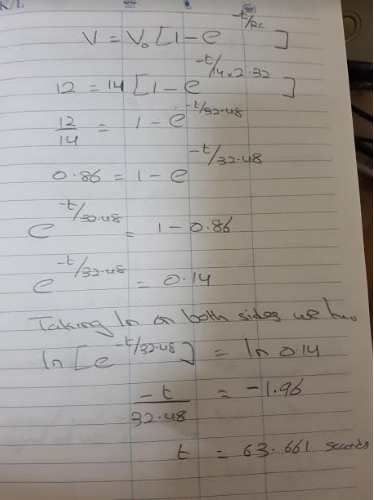 V = V₀ [1 - e^{-t/RC}]
12 = 14 [1 - e^{-t/14×2.32}]
12/14 = 1 - e^{-t/32.48}
0.86 = 1 - e^{-t/32.48}
e^{-t/32.48} = 1 - 0.86
e^{-t/32.48} = 0.14
Taking ln on both sides we
ln [e^{-t/32.48}] = ln 0.14
-t/32.48 = -1.96
t = 63.661 seconds